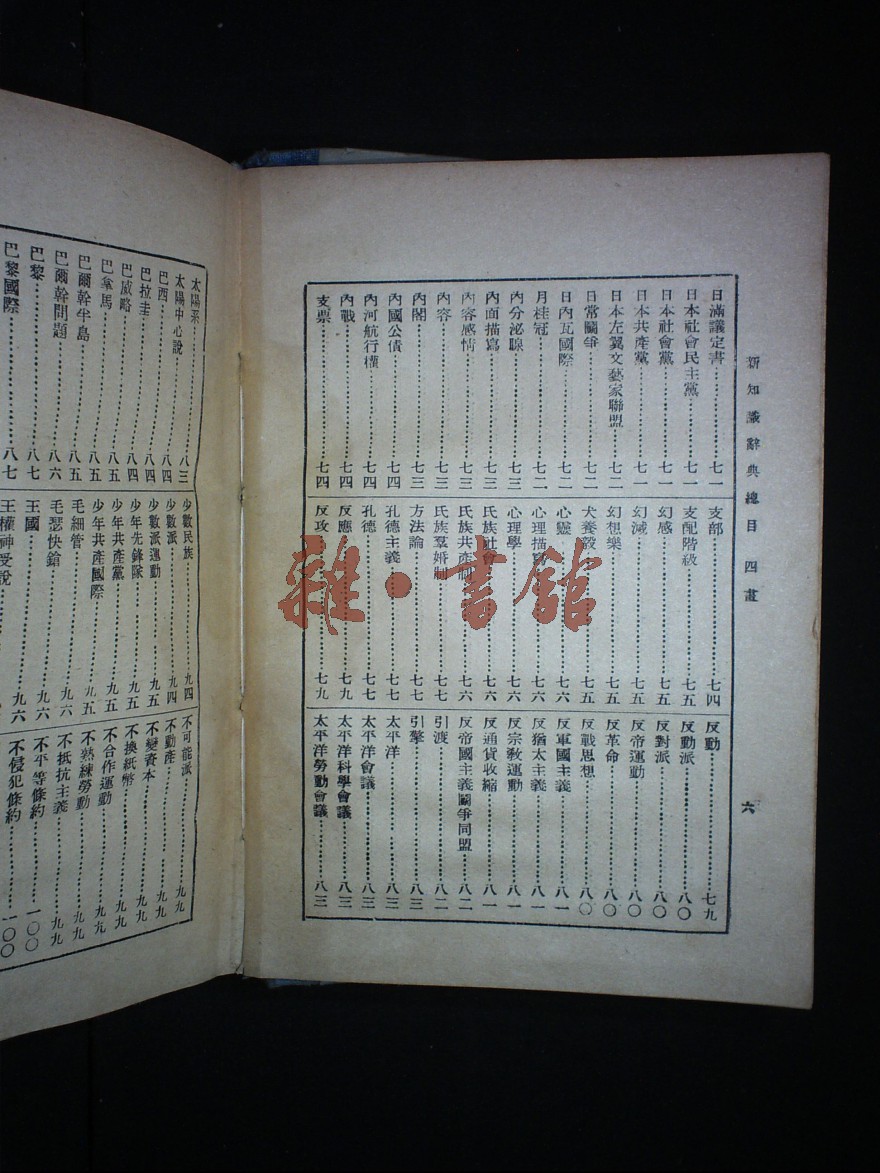 新知識辭典總目 四畫
六
日滿議定書………七一
日本社會民主黨………七一
日本社會黨………七一
日本共產黨………七一
日本左翼文藝家聯盟………七二
日常鬭爭………七二
日內瓦國際………七二
月桂冠………七二
內分泌腺………七三
內面描寫………七三
內容感情………七三
內容………七三
內閣………七三
內國公債………七四
內河航行權………七四
內戰………七四
支票………七四
支部………七四
支配階級………七五
幻感………七五
幻滅………七五
幻想樂………七五
犬養毅………七五
心靈………七六
心理描寫………七六
心理學………七六
民族社會………七六
民族共產制………七六
民族羣婚制………七七
方法論………七七
孔德主義………七七
孔德………七七
反應………七九
反攻………七九
反動………七九
反動派………八〇
反對派………八〇
反帝運動………八〇
反革命………八〇
反戰思想………八〇
反軍國主義………八一
反猶太主義………八一
反宗敎運動………八一
反通貨收縮………八一
反帝國主義鬭爭同盟………八二
引渡………八二
引擎………八三
太平洋………八三
太平洋會議………八三
太平洋科學會議………八三
太平洋勞動會議………八三
太陽系………八三
太陽中心說………八四
巴西………八四
巴拉圭………八四
巴威略………八五
巴拿馬………八五
巴爾幹半島………八五
巴爾幹問題………八六
巴黎………八七
巴黎國際………八七
少數民族………九四
少數派………九四
少數派運動………九五
少年先鋒隊………九五
少年共產黨………九五
少年共產國際………九五
毛細管………九六
毛瑟快鎗………九六
王國………九六
王權神受說………九六
不可能派………九九
不動產………九九
不變資本………九九
不換紙幣………九九
不合作運動………九九
不熟練勞動………九九
不抵抗主義………九九
不平等條約………一〇〇
不侵犯條約………一〇〇
雜·書館